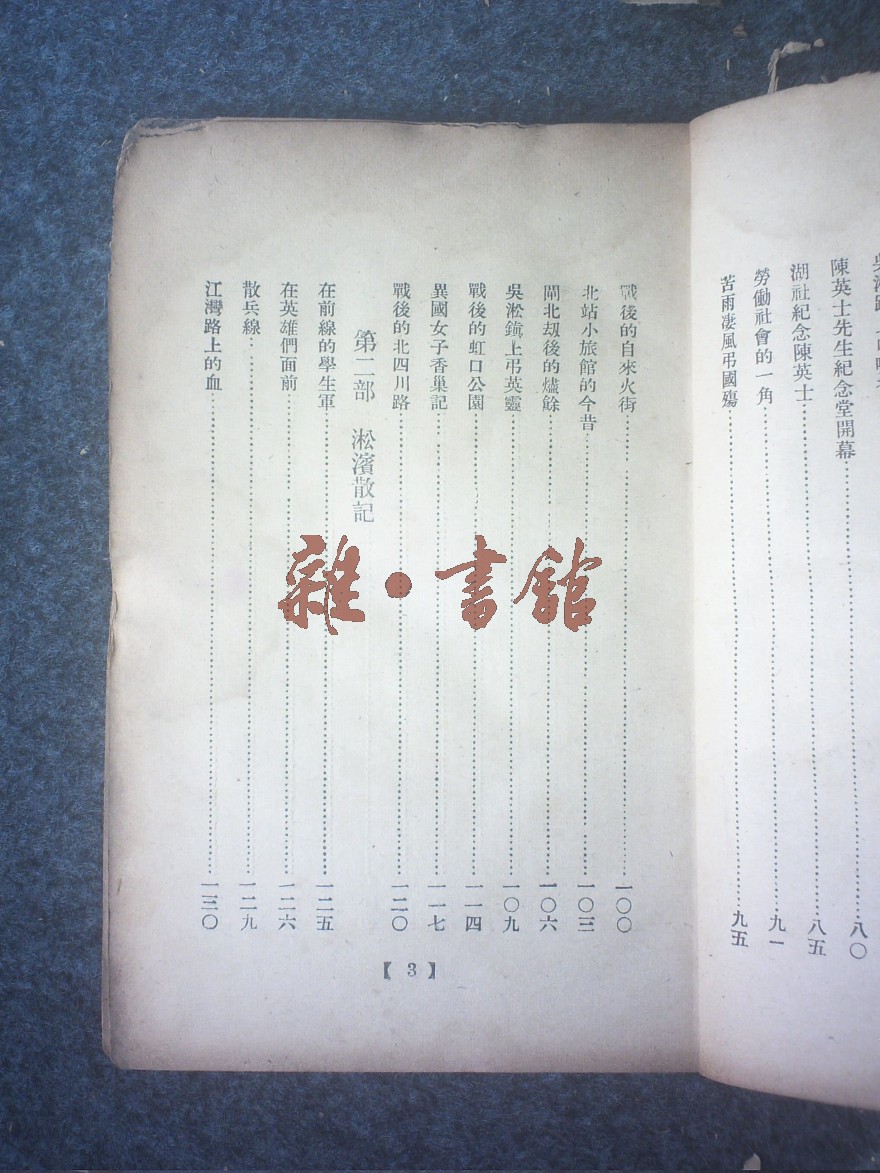 陳英士先生紀念堂開幕……八〇
湖社紀念陳英士……八五
勞働社會的一角……九一
苦雨淒風弔國殤……九五
戰後的自來火街……一〇〇
北站小旅館的今昔……一〇三
閘北刼後的燼餘……一〇六
吳淞鎭上弔英靈……一〇九
戰後的虹口公園……一一四
異國女子香巢記……一一七
戰後的北四川路……一二〇
第二部 淞濱散記
在前線的學生軍……一二五
在英雄們面前……一二六
散兵線……一二九
江灣路上的血……一三〇
【3】
雜·書館